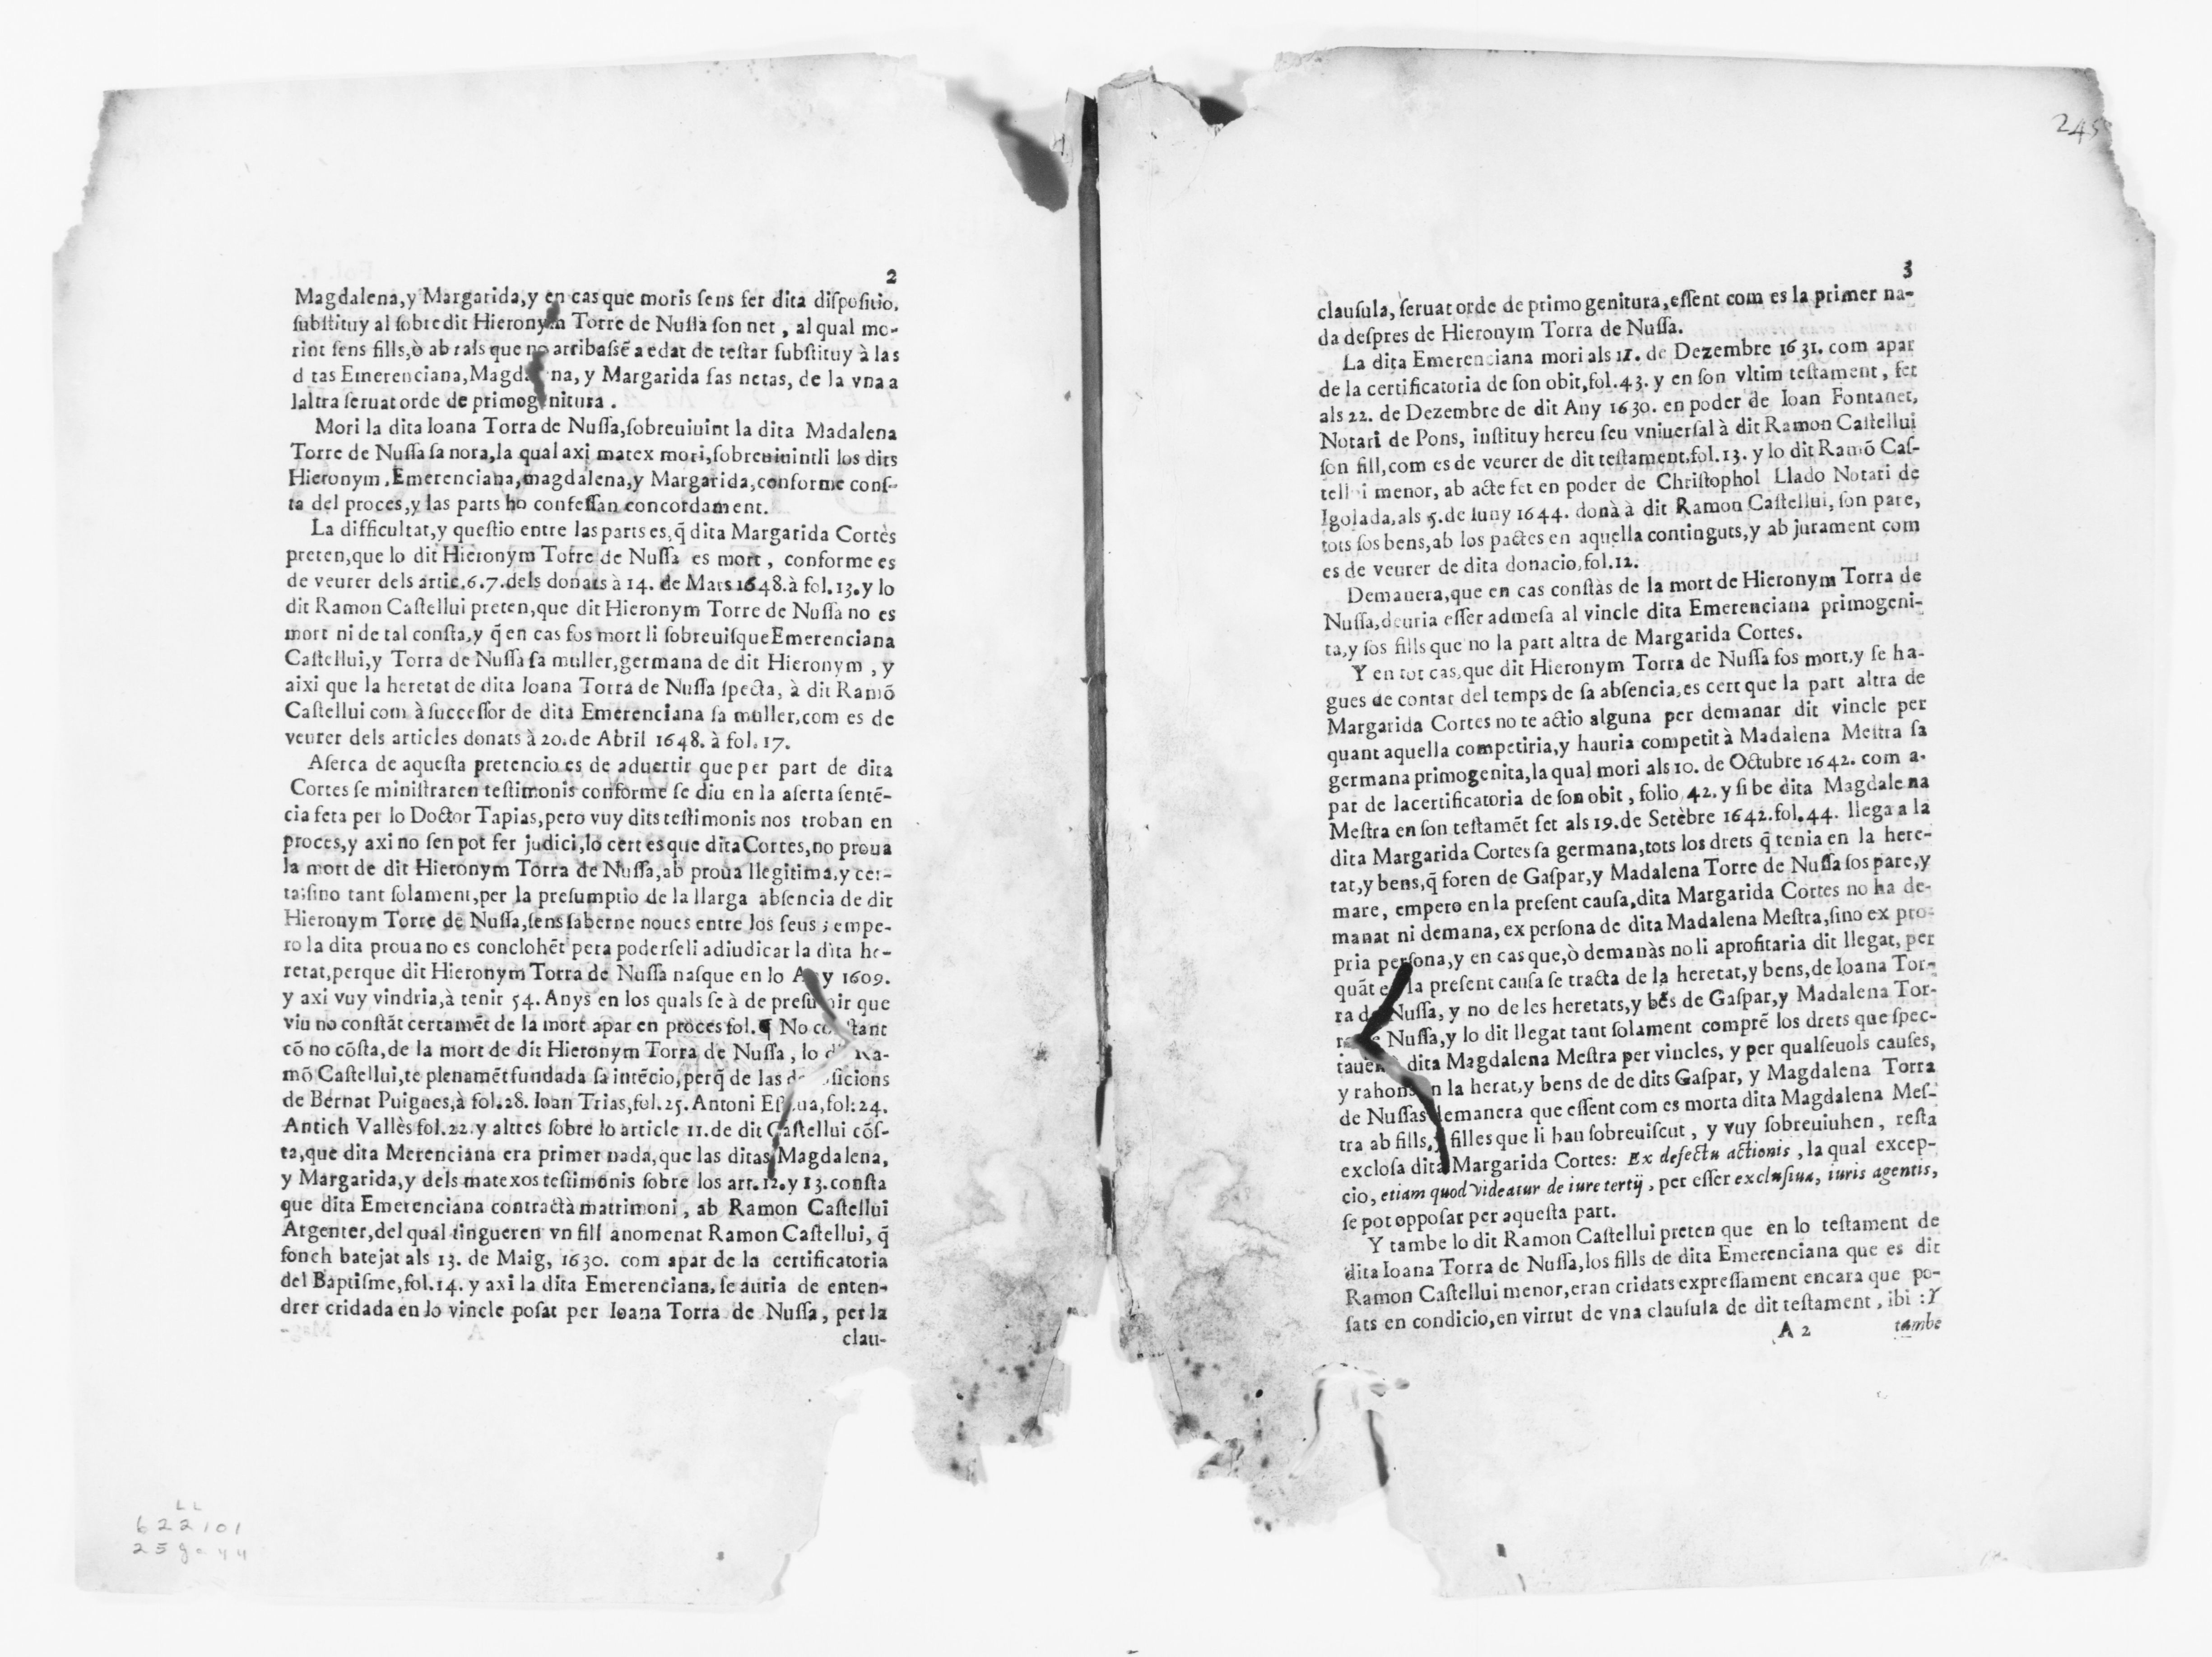 2
Magdalena,y Margarida,y en cas que moris sens fer dita dispositio.
substituy al sobredit Hieronym Torre de Nussa son net , al qual mo-
rint sens fills,ò ab tals que no arribassē a edat de testar substituy à las
d tas Emerenciana, y Margarida sas netas, de la vna a
laltra seruat orde de primogenitura .
Mori la dita Ioana Torra de Nussa,sobreuiuint la dita Madalena
Torre de Nussa sa nora,la qual axi matex mori,sobreuiuintli los dits
Hieronym,Emerenciana,magdalena,y Margarida,conforme cons-
ta del proces,y las parts ho confessan concordament.
La difficultat,y questio entre las parts es,q̄ dita Margarida Cortès
preten,que lo dit Hieronym Torre de Nussa es mort , conforme es
de veurer dels artic.6.7.dels donats à 14. de Mars 1648.à fol.13.y lo
dit Ramon Castellui preten,que dit Hieronym Torre de Nussa no es
mort ni de tal consta,y q̄ en cas fos mort li sobreuisque Emerenciana
Castellui,y Torra de Nussa sa muller,germana de dit Hieronym , y
aixi que la heretat de dita Ioana Torra de Nussa specta, à dit Ramō
Castellui com à successor de dita Emerenciana sa muller,com es de
veurer dels articles donats à 20.de Abril 1648. à fol.17.
Aserca de aquesta pretencio es de aduertir que per part de dita
Cortes se ministraren testimonis conforme se diu en la aserta sentē-
cia feta per lo Doctor Tapias,pero vuy dits testimonis nos troban en
proces,y axi no sen pot fer judici,lo cert es que dita Cortes,no proua
la mort de dit Hieronym Torra de Nussa,ab proua llegitima,y cer-
ta;sino tant solament,per la presumptio de la llarga absencia de dit
Hieronym Torre de Nussa,sens saberne noues entre los seus ; empe-
ro la dita proua no es conclohēt pera poderseli adiudicar la dita he-
retat,perque dit Hieronym Torra de Nussa nasque en lo Any 1609.
y axi vuy vindria,à tenir 54. Anys en los quals se à de presumir que
viu no constāt certamēt de la mort apar en proces fol. No constant
cō no cōsta,de la mort de dit Hieronym Torra de Nussa , lo dit Ra-
mō Castellui,te plenamēt fundada sa intēcio,perq̄ de las deposicions
de Bernat Puigues,à fol.28. Ioan Trias,fol.25. Antoni fol:24.
Antich Vallès fol.22.y altres sobre lo article 11.de dit Castellui cōs-
ta,que dita Merenciana era primer nada,que las ditas Magdalena,
y Margarida,y dels matexos testimonis sobre los art.12.y 13.consta
que dita Emerenciana contractà matrimoni , ab Ramon Castellui
Argenter,del qual tingueren vn fill anomenat Ramon Castellui, q̄
fonch batejat als 13. de Maig, 1630. com apar de la certificatoria
del Baptisme,fol.14. y axi la dita Emerenciana, se auria de enten-
drer cridada en lo vincle posat per Ioana Torra de Nussa, per la
clau-
245
3
clausula, seruat orde de primogenitura,essent com es la primer na-
da despres de Hieronym Torra de Nussa.
La dita Emerenciana mori als 11. de Dezembre 1631. com apar
de la certificatoria de son obit,fol.43. y en son vltim testament , fet
als 22. de Dezembre de dit Any 1630. en poder de Ioan Fontanet,
Notari de Pons, instituy hereu seu vniuersal à dit Ramon Castellui
son fill,com es de veurer de dit testament,fol.13. y lo dit Ramō Cas-
tellui menor, ab acte fet en poder de Christophol Llado Notari de
Igolada,als 5.de Iuny 1644. donà à dit Ramon Castellui, son pare,
tots sos bens,ab los pactes en aquella continguts,y ab jurament com
es de veurer de dita donacio,fol.12.
Demanera,que en cas constàs de la mort de Hieronym Torra de
Nussa,deuria esser admesa al vincle dita Emerenciana primogeni-
ta,y sos fills que no la part altra de Margarida Cortes.
Y en tot cas,que dit Hieronym Torra de Nussa fos mort,y se ha-
gues de contar del temps de sa absencia,es cert que la part altra de
Margarida Cortes no te actio alguna per demanar dit vincle per
quant aquella competiria,y hauria competit à Madalena Mestra sa
germana primogenita,la qual mori als 10. de Octubre 1642. com a-
par de lacertificatoria de son obit , folio 42. y si be dita Magdalena
Mestra en son testamēt fet als 19.de Setèbre 1642.fol.44. llega a la
dita Margarida Cortes sa germana,tots los drets q̄ tenia en la here-
tat,y bens,q̄ foren de Gaspar,y Madalena Torre de Nussa sos pare,y
mare, empero en la present causa,dita Margarida Cortes no ha de-
manat ni demana, ex persona de dita Madalena Mestra,sino ex pro-
pria persona,y en cas que,ò demanàs no li aprofitaria dit llegat, per
quāt en la present causa se tracta de la heretat,y bens,de Ioana Tor-
ra de Nussa, y no de les heretats,y bēs de Gaspar,y Madalena Tor-
ra de Nussa,y lo dit llegat tant solament comprē los drets que spec-
tauen à dita Magdalena Mestra per vincles, y per qualseuols causes,
y rahons en la herat,y bens de de dits Gaspar, y Magdalena Torra
de Nussas demanera que essent com es morta dita Magdalena Mes-
tra ab fills,y filles que li hau sobreuiscut , y vuy sobreuiuhen, resta
exclosa dita Margarida Cortes: Ex defectu actionis , la qual excep-
cio, etiam quod videatur de iure tertij , per esser exclusiua, iuris agentis,
se pot opposar per aquesta part.
Y tambe lo dit Ramon Castellui preten que en lo testament de
dita Ioana Torra de Nussa,los fills de dita Emerenciana que es dit
Ramon Castellui menor,eran cridats expressament encara que po-
sats en condicio,en virtut de vna clausula de dit testament , ibi : Y
A 2 tambe
LL
622101